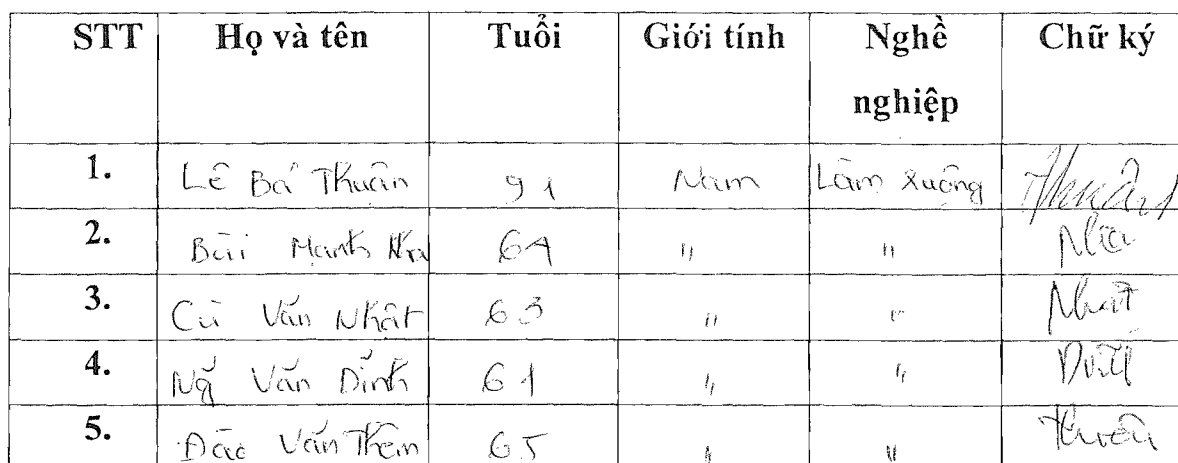 STT Họ và tên Tuổi Giới tính Nghề nghiệp Chữ ký
1. Lê Bá Thuận 91 Nam Làm xuộng Thuân
2. Bùi Mạnh 64 " "
3. Cù Văn Nhật 63 " " Nhật
4. Ng Văn Dinh 61 " "
5. Đào Văn Thêm 65 " "